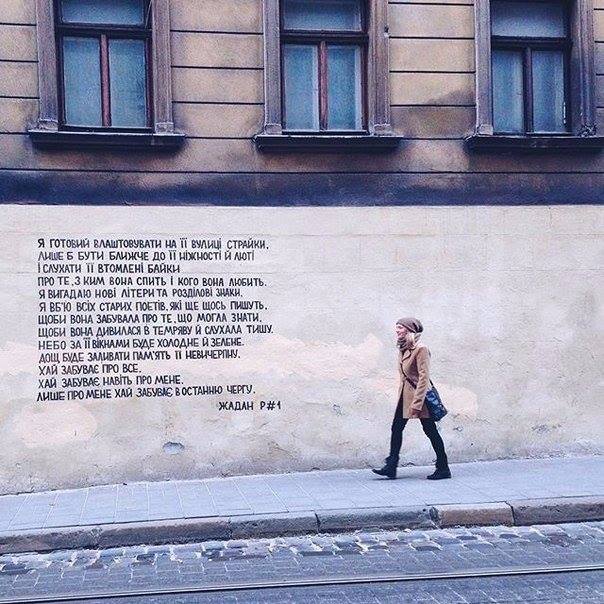 Я ГОТОВИЙ ВЛАШТОВУВАТИ НА ЇЇ ВУЛИЦІ СТРАЙКИ,
ЛИШЕ Б БУТИ БЛИЖЧЕ ДО ЇЇ НІЖНОСТІ Й ЛЮТІ
І СЛУХАТИ ЇЇ ВТОМЛЕНІ БАЙКИ
ПРО ТЕ, З КИМ ВОНА СПИТЬ І КОГО ВОНА ЛЮБИТЬ.
Я ВИГАДАЮ НОВІ ЛІТЕРИ ТА РОЗДІЛОВІ ЗНАКИ,
Я ВБ'Ю ВСІХ СТАРИХ ПОЕТІВ, ЯКІ ЩЕ ЩОСЬ ПИШУТЬ,
ЩОБИ ВОНА ЗАБУВАЛА ПРО ТЕ, ЩО МОГЛА ЗНАТИ,
ЩОБИ ВОНА ДИВИЛАСЯ В ТЕМРЯВУ Й СЛУХАЛА ТИШУ.
НЕБО ЗА ЇЇ ВІКНАМИ БУДЕ ХОЛОДНЕ Й ЗЕЛЕНЕ.
ДОЩ БУДЕ ЗАЛИВАТИ ПАМ'ЯТЬ ЇЇ НЕВИЧЕРПНУ.
ХАЙ ЗАБУВАЄ ПРО ВСЕ,
ХАЙ ЗАБУВАЄ НАВІТЬ ПРО МЕНЕ,
ЛИШЕ ПРО МЕНЕ ХАЙ ЗАБУВАЄ В ОСТАННЮ ЧЕРГУ.
ЖАДАН Р#1